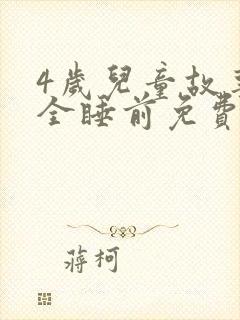 4歲兒童故事
全睡前免費
蔣柯